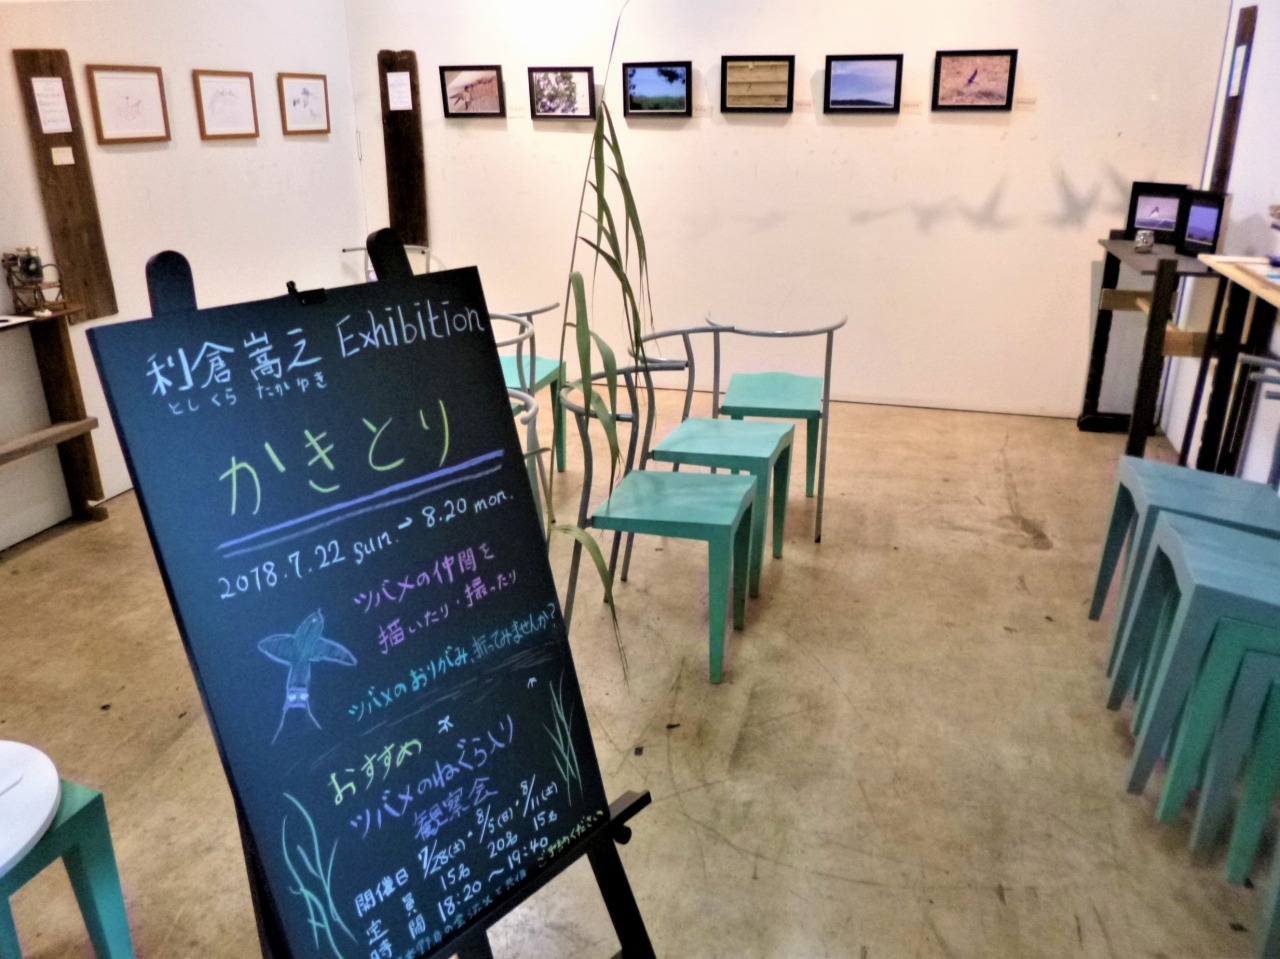 利倉 嵩之 Exhibition
としくら たかゆき
かきとり
2018.7.22 sun.→8.20 mon.
ツバメの仲間を
描いたり・撮ったり
ツバメのおりがみ、折ってみませんか?
おすすめ
ツバメのねぐら入り
観察会
開催日 7/28(土)・8/5(日)・8/11(土)
定員 15名 20名 15名
時間 18:20〜19:40